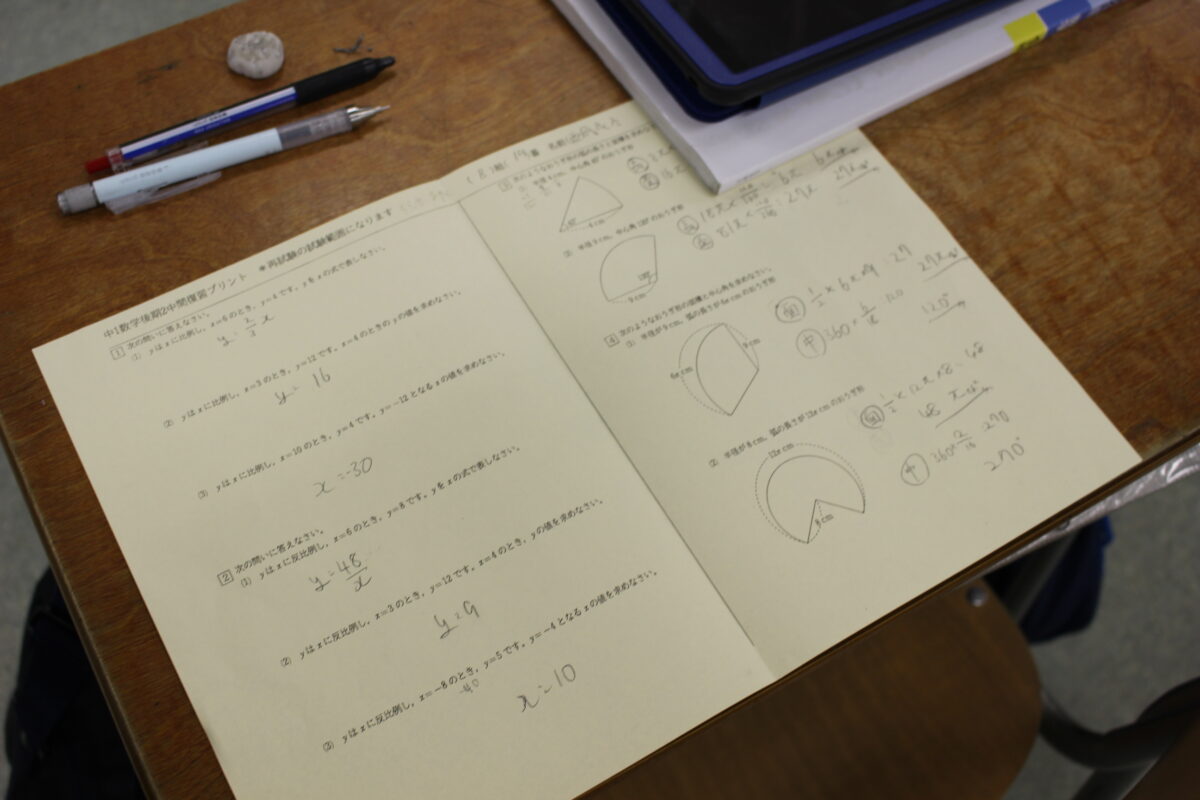 中1数学後期2中間復習プリント ＊再試験の試験範囲になります
1 次の問いに答えなさい。
(1) yはxに比例し，x=6のとき，y=4です。yをxの式で表しなさい。
y=2/3x
(2) yはxに比例し，x=3のとき，y=12です。x=4のときのyの値を求めなさい。
y=16
(3) yはxに比例し，x=10のとき，y=4です。y=-12となるxの値を求めなさい。
x=-30
2 次の問いに答えなさい。
(1) yはxに反比例し，x=6のとき，y=8です。yをxの式で表しなさい。
y=48/x
(2) yはxに反比例し，x=3のとき，y=12です。x=4のとき，yの値を求めなさい。
y=9
(3) yはxに反比例し，x=-8のとき，y=5です。y=-4となるxの値を求めなさい。
-40
x=10
(8)組 19番 名前
3 次のようなおうぎ形の弧の長さと面積を求めな
半径4cm，中心角45°のおうぎ形
4cm
(2) 半径9cm，中心角120°のおうぎ形
120°
9cm
4 次のようなおうぎ形の面積と中心角を求めなさい。
(1) 半径が9cm，弧の長さが6πcmのおうぎ形
9cm
6πcm
中 360×6/18 120
120°
(2) 半径が8cm，弧の長さが12πcmのおうぎ形
12πcm
8cm
面 1/2×12π×8=48
48πcm²
中 360×12/16 270
270°